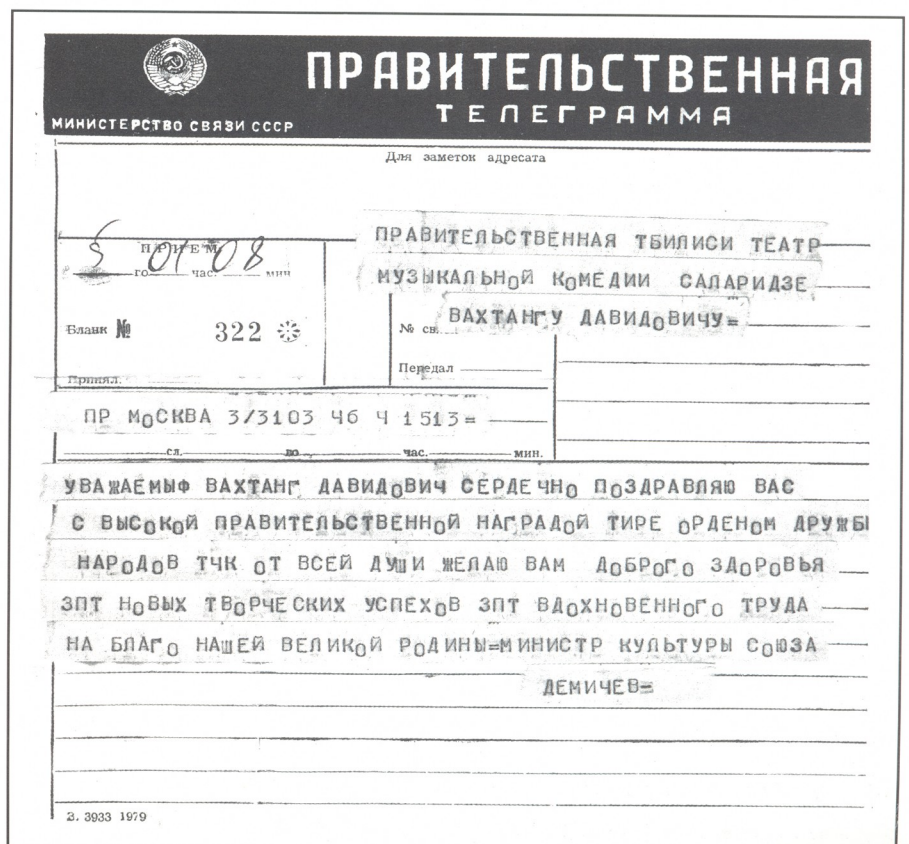 ПРАВИТЕЛЬСТВЕННАЯ
ТЕЛЕГРАММА
МИНИСТЕРСТВО СВЯЗИ СССР
Для заметок адресата
ПРИЕМ
5 01 08
го час. мин
Бланк № 322
Принял.
ПРАВИТЕЛЬСТВЕННАЯ ТБИЛИСИ ТЕАТР
МУЗЫКАЛЬНОЙ КОМЕДИИ САЛАРИДЗЕ
ВАХТАНГУ ДАВИДОВИЧУ=
№ св.
Передал
ПР МОСКВА 3/3103 Ч6 Ч 1513=
сл. по час. мин.
УВАЖАЕМЫФ ВАХТАНГ ДАВИДОВИЧ СЕРДЕЧНО ПОЗДРАВЛЯЮ ВАС
С ВЫСОКОЙ ПРАВИТЕЛЬСТВЕННОЙ НАГРАДОЙ ТИРЕ ОРДЕНОМ ДРУЖБЫ
НАРОДОВ ТЧК ОТ ВСЕЙ ДУШИ ЖЕЛАЮ ВАМ ДОБРОГО ЗДОРОВЬЯ
ЗПТ НОВЫХ ТВОРЧЕСКИХ УСПЕХОВ ЗПТ ВДОХНОВЕННОГО ТРУДА
НА БЛАГО НАШЕЙ ВЕЛИКОЙ РОДИНЫ=МИНИСТР КУЛЬТУРЫ СОЮЗА
ДЕМИЧЕВ=
З. 3933 1979